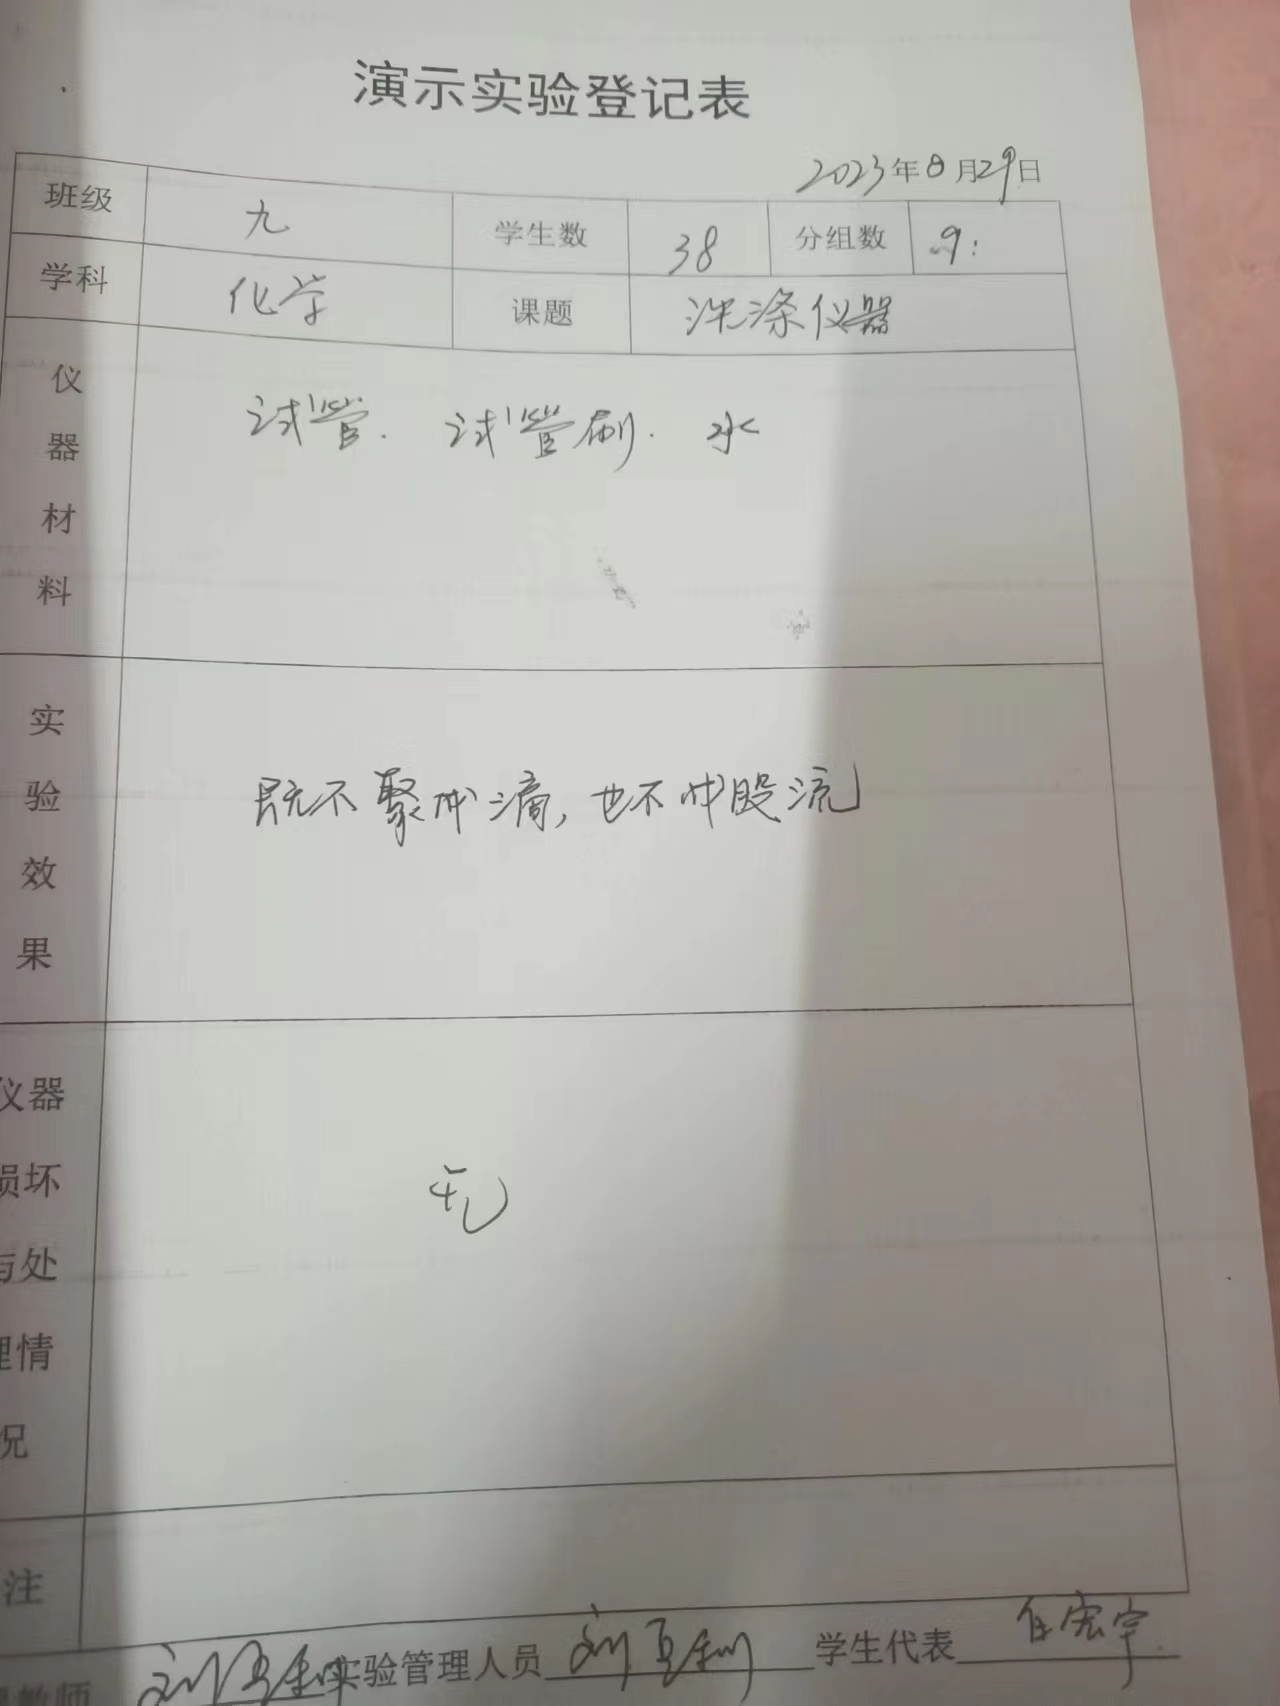 演示实验登记表
2023年8月29日
班级 九 学生数 38 分组数 9
学科 化学 课题 洗涤仪器
仪器材料 试管. 试管刷. 水
实验效果 既不聚成滴,也不成股流
仪器损坏与处理情况 无
注
教师 实验管理人员 学生代表 任宏宇